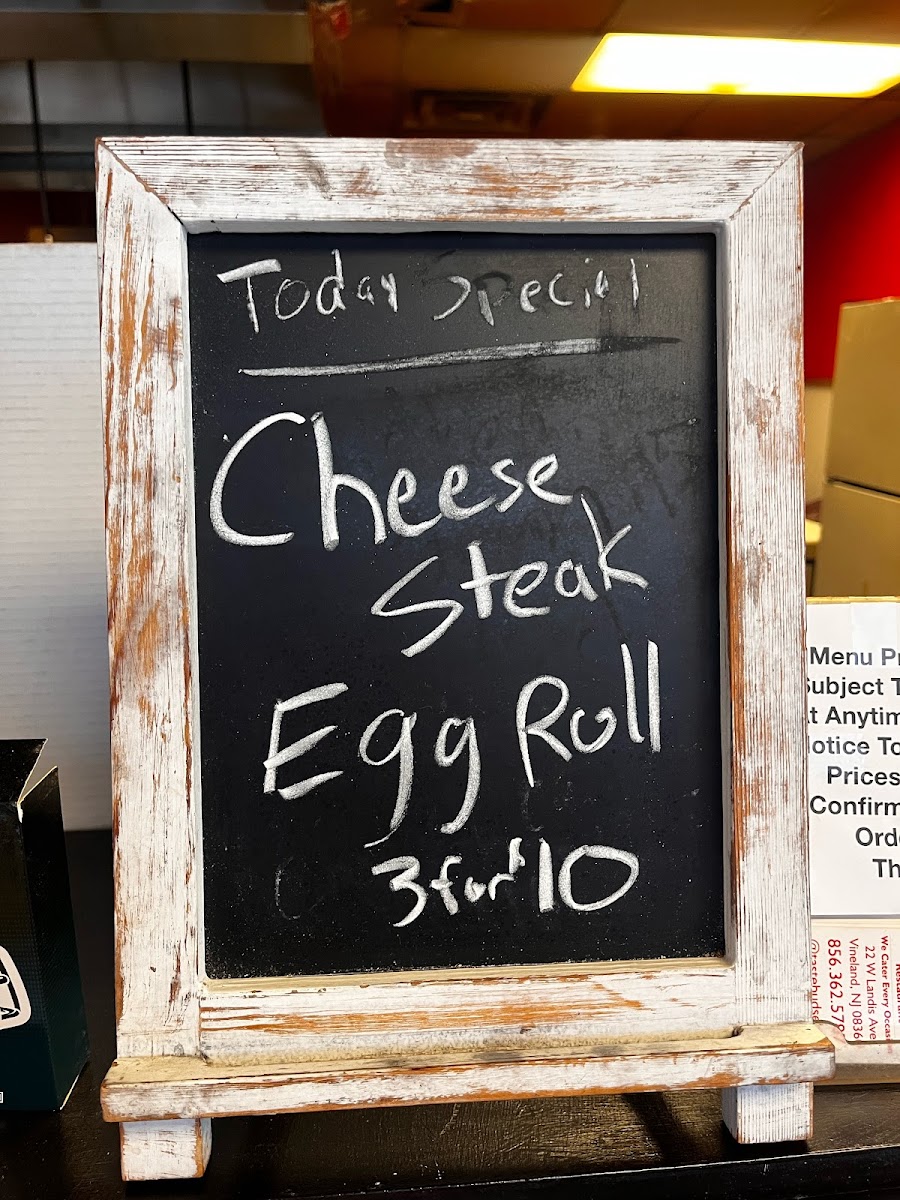 Today Special
Cheese
Steak
Egg Roll
3 for $10
Menu
Subject
at Anytim
Notice To
Prices
Confirm
Th
We Cater Every Occas
22 W Landis Ave
Vineland, NJ 0836
856.362.57